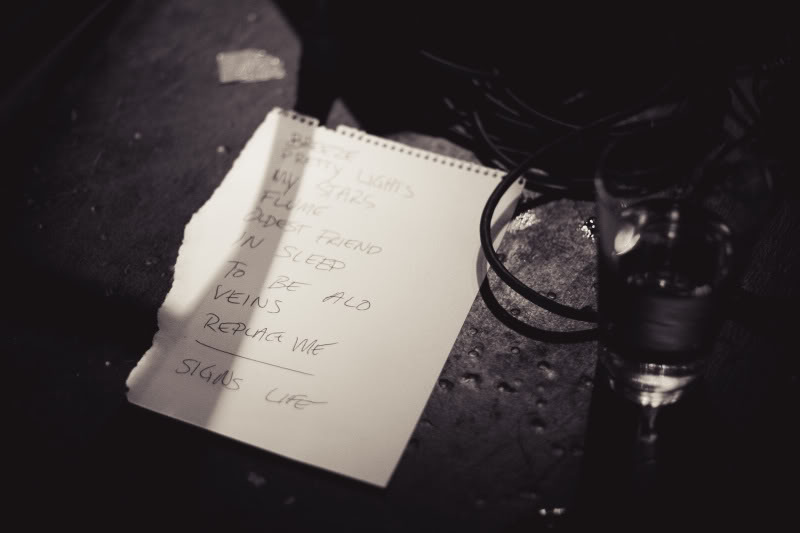 BREEZE
PRETTY LIGHTS
MY STARS
FLUME
OLDEST FRIEND
IN SLEEP
TO BE ALO
VEINS
REPLACE ME
SIGNS LIFE